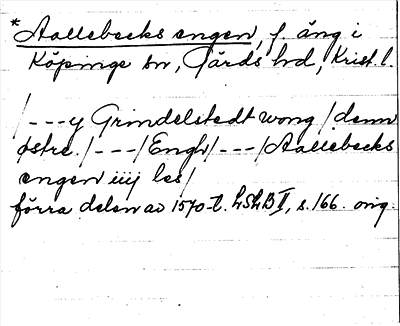 *Aallebecks engen, f. äng i
Köpinge sn, Gärds hd, Krist. l.
/---y Grindelstedt wong / denn
østre. /---/ Engh /---/ Aallebecks
engen iiij les /
förra delen av 1570-t. LSLB II, s. 166. orig.